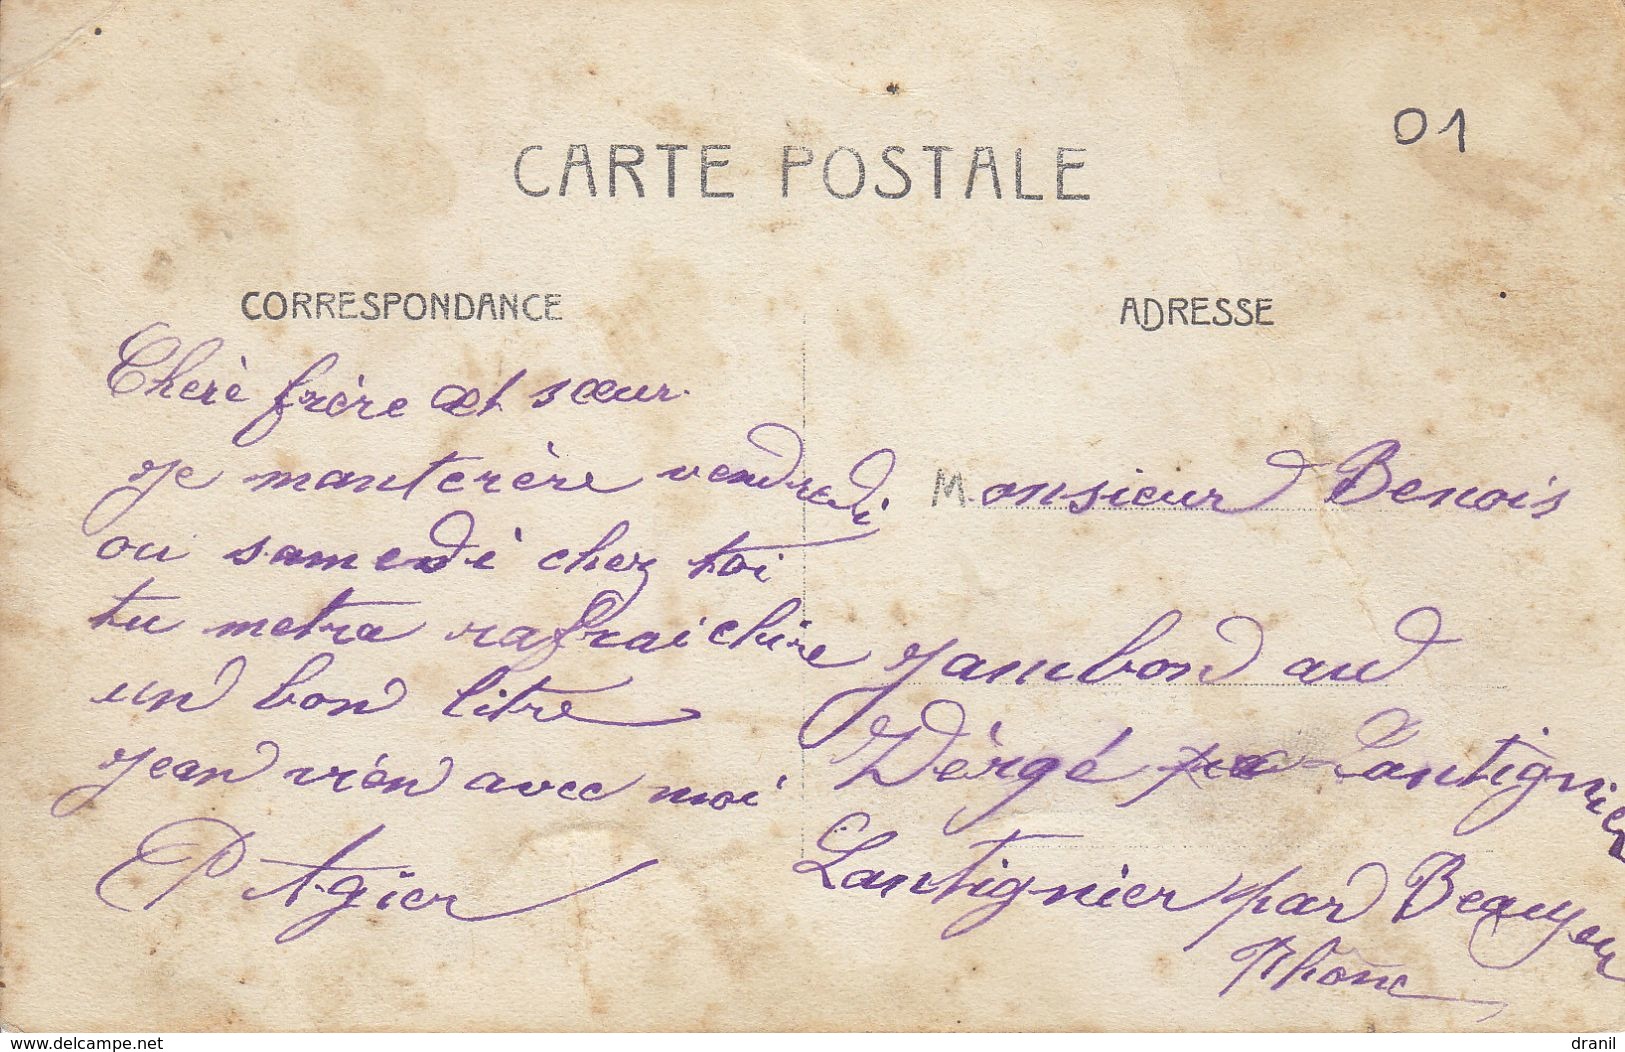 01
CARTE POSTALE
CORRESPONDANCE
Cherè frère et sœur
je manterère vendredi
ou samedi chez toi
tu metra rafraichire
un bon litre
jean vien avec moi
P Agier
ADRESSE
Monsieur Benois
Jambon au
Vèrgé Lantignier
Lantignier par Beaujeu
Rhône
delcampe.net
dranil